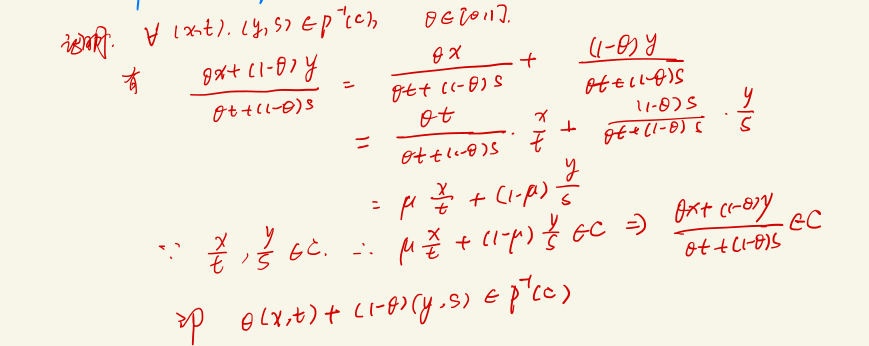 证明. ∀ (x,t). (y,s) ∈ p⁻¹(c), θ∈[0,1].
有 (θx+(1-θ)y)/(θt+(1-θ)s) = θx/(θt+(1-θ)s) + (1-θ)y/(θt+(1-θ)s)
= θt/(θt+(1-θ)s) · x/t + (1-θ)s/(θt+(1-θ)s) · y/s
= μ x/t + (1-μ) y/s
∵ x/t, y/s ∈C. ∴ μ x/t + (1-μ) y/s ∈C ⇒ (θx+(1-θ)y)/(θt+(1-θ)s) ∈C
即 θ(x,t)+(1-θ)(y,s) ∈ p⁻¹(c)